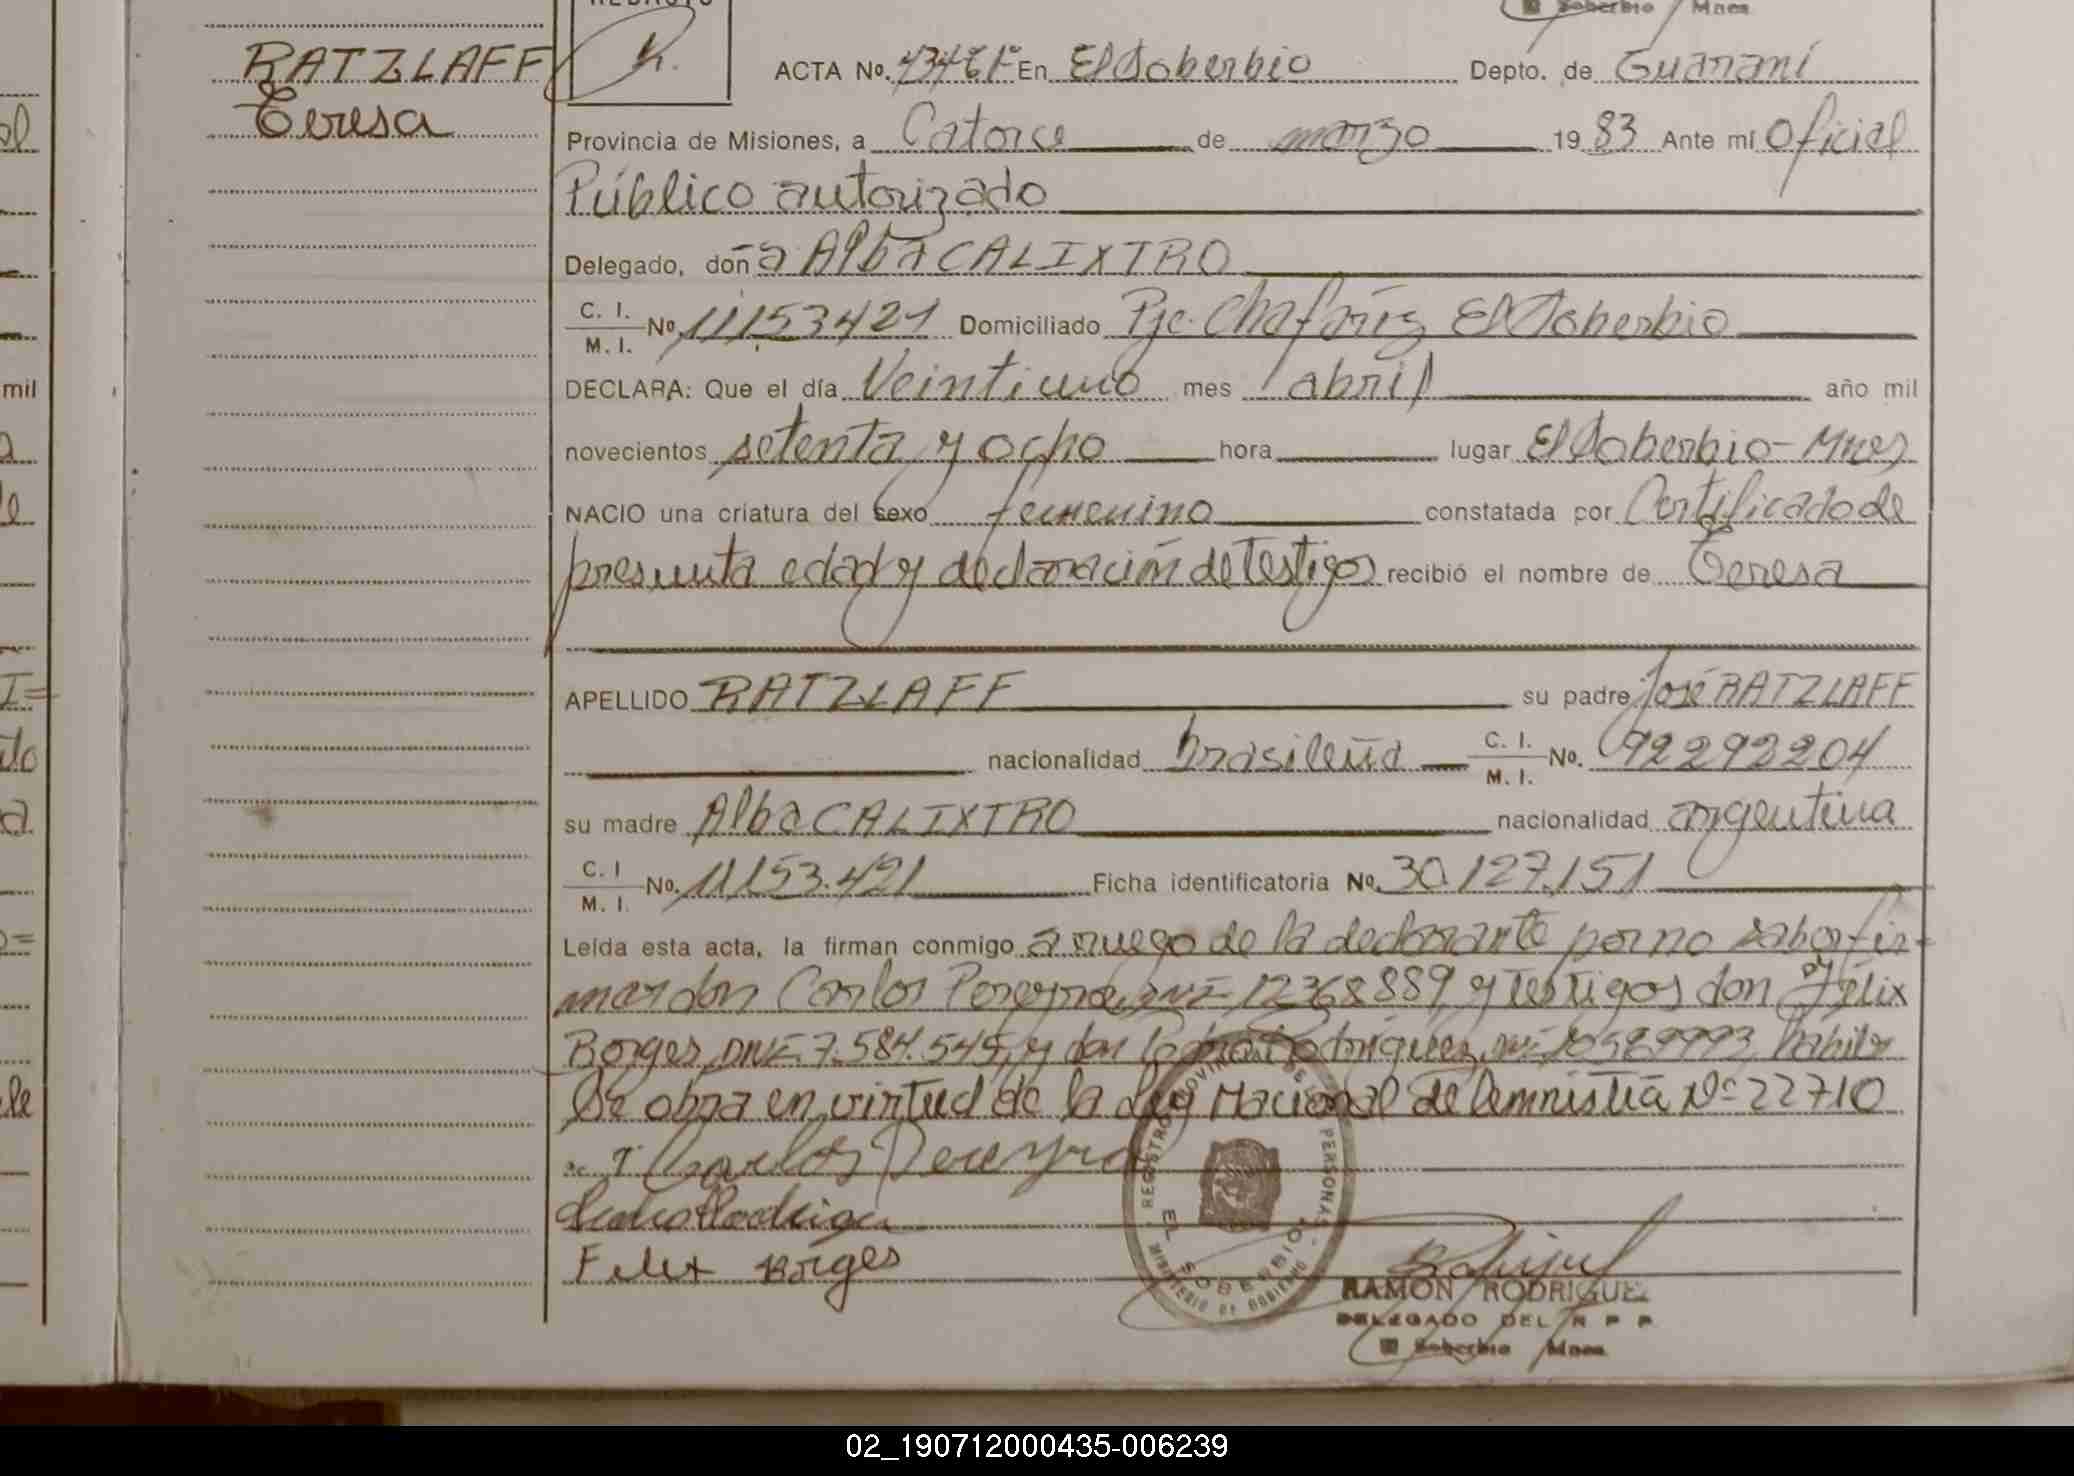 RATZLAFF
Teresa
REDACTO
Soberbio Mnes
ACTA No. En El Soberbio Depto. de Guaraní
Provincia de Misiones, a Catorce de marzo 19 83 Ante mí Oficial
Público autorizado
Delegado, doña Alba CALIXTRO
C. I.
M. I. No 11153421 Domiciliado Pje. Chafariz El Soberbio
DECLARA: Que el día Veintiuno mes abril año mil
novecientos setenta y ocho hora lugar El Soberbio - Mnes
NACIO una criatura del sexo femenino constatada por Certificado de
presunta edad y declaración de Testigos recibió el nombre de Teresa
APELLIDO RATZLAFF su padre José RATZLAFF
nacionalidad brasileña C. I.
M. I. No. 92292204
su madre Alba CALIXTRO nacionalidad argentina
C. I
M. I. No. 11153.421 Ficha identificatoria No. 30.127.151
Leída esta acta, la firman conmigo a ruego de la declarante por no saber fir-
mar don Carlos Pereyra, 12368889 y testigos don Félix
Borges, DNI. 7.584.545, y don Rodríguez, habiles
Se obra en virtud de la Ley Nacional de Amnistía Nº 22710
Carlos Pereyra
Felix Borges
REGISTRO PROVINCIAL DE LAS PERSONAS
MINISTERIO DE GOBIERNO
EL SOBERBIO
RAMON RODRIGUEZ
DELEGADO DEL R P P
El Soberbio Mnes
mil
02_190712000435-006239